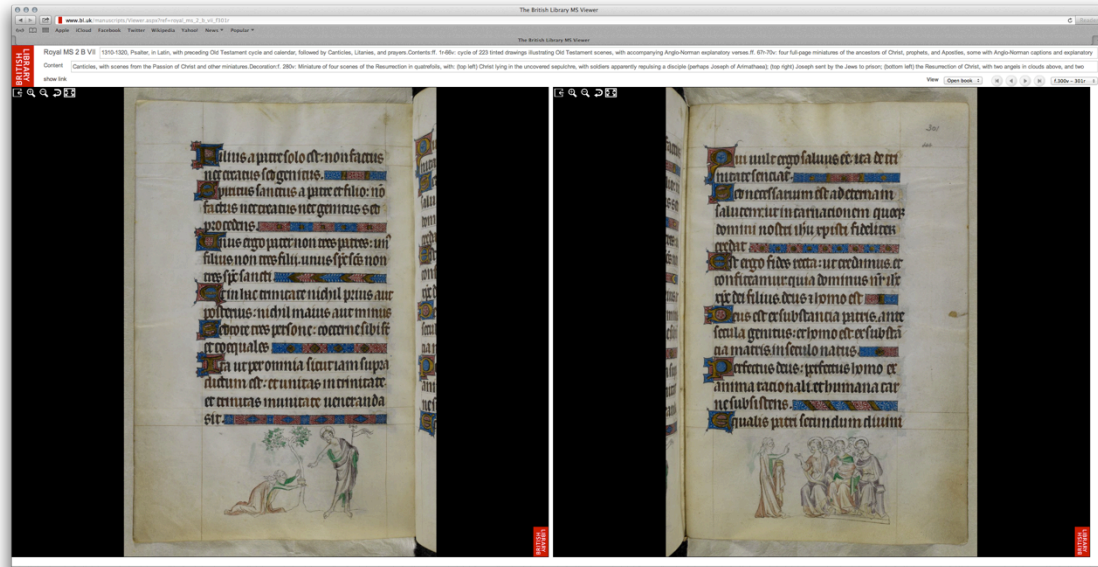 The British Library MS Viewer
www.bl.uk/manuscripts/Viewer.aspx?ref=royal_ms_2_b_vii_f301r
Apple iCloud Facebook Twitter Wikipedia Yahoo! News Popular
The British Library MS Viewer
BRITISH LIBRARY
Royal MS 2 B VII 1310-1320, Psalter, in Latin, with preceding Old Testament cycle and calendar, followed by Canticles, Litanies, and prayers.Contents:ff. 1r-66v: cycle of 223 tinted drawings illustrating Old Testament scenes, with accompanying Anglo-Norman explanatory verses.ff. 67r-70v: four full-page miniatures of the ancestors of Christ, prophets, and Apostles, some with Anglo-Norman captions and explanatory
Content Canticles, with scenes from the Passion of Christ and other miniatures.Decoration:f. 280v: Miniature of four scenes of the Resurrection in quatrefoils, with: (top left) Christ lying in the uncovered sepulchre, with soldiers apparently repulsing a disciple (perhaps Joseph of Arimathaea); (top right) Joseph sent by the Jews to prison; (bottom left) the Resurrection of Christ, with two angels in clouds above, and two
show link View Open book f.300v - 301r
filius a patre solo est: non factus
nec creatus sed genitus.
Spiritus sanctus a patre et filio: nō
factus nec creatus nec genitus sed
procedens.
Unus ergo pater non tres patres: un
filius non tres filii: unus sp̄s sc̄s non
tres sp̄c sancti
Et in hac trinitate nichil prius aut
posterius: nichil maius aut minus
Sed tote tres persone: coeterne sibi st
et coequales
Ita ut per omnia sicut iam supra
dictum est: et unitas in trinitate
et trinitas in unitate veneranda
sit
301
Qui vult ergo salvus eē: ita de tri
nitate senciat.
Sed necessarium est ad eternam
salutem: ut incarnationem quoqʒ
domini nostri ihu xpisti fideliter
credat
Est ergo fides recta: ut credamus et
confiteamur quia dominus nr̄ ihc
xpc dei filius deus et homo est
Deus est ex substancia patris ante
secula genitus: et homo est ex substā
cia matris in seculo natus
Perfectus deus: perfectus homo ex
anima racionali et humana car
ne subsistens.
Equalis patri secundum divini
BRITISH LIBRARY
BRITISH LIBRARY